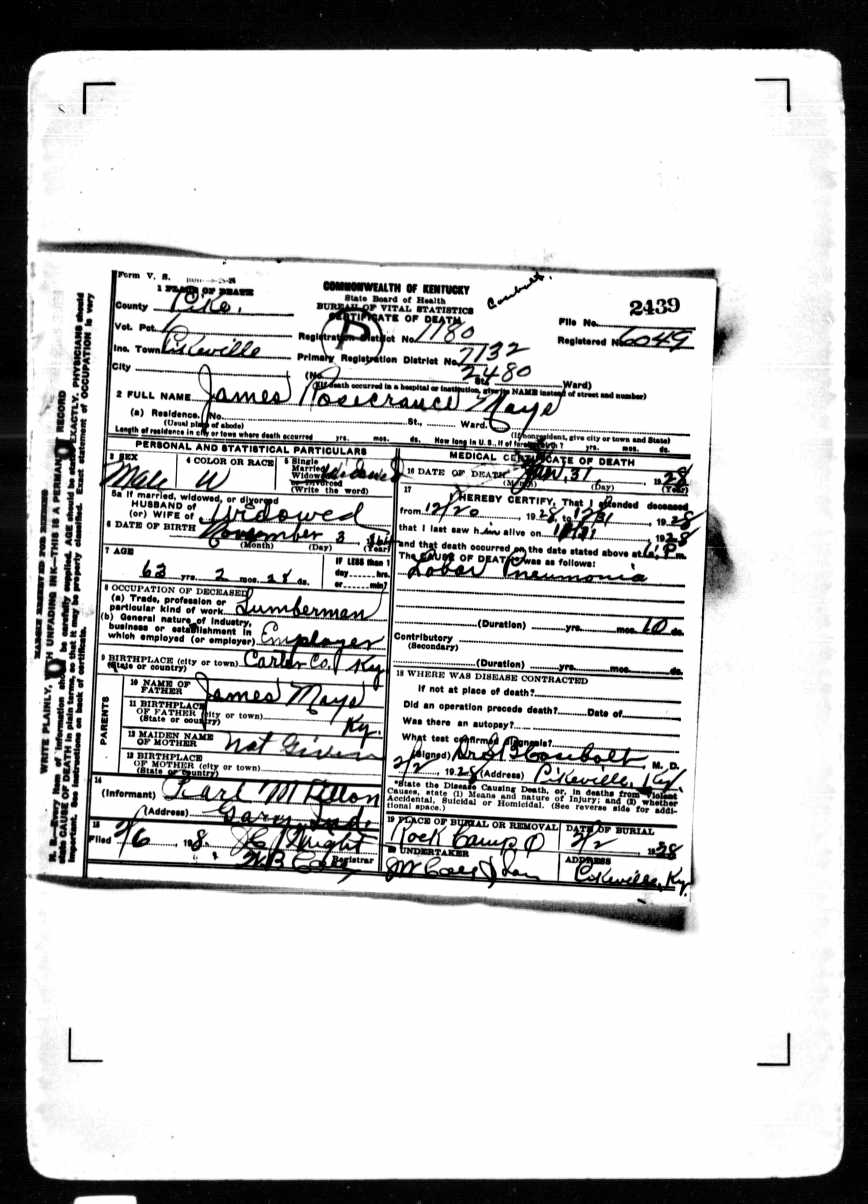 Form V. S.
1 PLACE OF DEATH
COMMONWEALTH OF KENTUCKY
State Board of Health
BUREAU OF VITAL STATISTICS
CERTIFICATE OF DEATH
2439
County Pike.
File No.
Vot. Pct.
Registration District No. 1180
Registered No. 6049
Inc. Town Pikeville
Primary Registration District No. 7132
City
(No. 2480 St. Ward)
(If death occurred in a hospital or institution, give its NAME instead of street and number)
2 FULL NAME James Rosecrance Maye
(a) Residence. No. St., Ward.
(Usual place of abode) (If nonresident, give city or town and State)
Length of residence in city or town where death occurred yrs. mos. ds. How long in U. S., if of foreign birth? yrs. mos. ds.
PERSONAL AND STATISTICAL PARTICULARS
3 SEX
Male
4 COLOR OR RACE
W
5 Single
Married
Widowed
or Divorced
(Write the word)
Widowed
5a If married, widowed, or divorced
HUSBAND of
(or) WIFE of Widowed
6 DATE OF BIRTH November 3
(Month) (Day) (Year)
7 AGE
63 yrs. 2 mos. 28 ds.
IF LESS than 1
day hrs.
or min?
8 OCCUPATION OF DECEASED
(a) Trade, profession or
particular kind of work Lumberman
(b) General nature of industry,
business or establishment in
which employed (or employer) Employer
9 BIRTHPLACE (city or town) Carter Co. Ky
(State or country)
PARENTS
10 NAME OF
FATHER James Maye
11 BIRTHPLACE
OF FATHER (city or town)
(State or country) Ky.
12 MAIDEN NAME
OF MOTHER Not Given
13 BIRTHPLACE
OF MOTHER (city or town)
(State or country)
14
(Informant)
(Address) Gary Ind.
15
Filed 2/6, 1928. Wright
Registrar
MEDICAL CERTIFICATE OF DEATH
16 DATE OF DEATH Jan, 31, 1928
(Month) (Day) (Year)
17
I HEREBY CERTIFY, That I attended deceased
from 12/20, 1928, to 12/31, 1928
that I last saw him alive on, 1928
and that death occurred on the date stated above at 6 P m.
The CAUSE OF DEATH was as follows:
Lobar Pneumonia
(Duration) yrs. mos. 10 ds.
Contributory
(Secondary)
(Duration) yrs. mos. ds.
18 WHERE WAS DISEASE CONTRACTED
If not at place of death?
Did an operation precede death? Date of
Was there an autopsy?
What test confirmed diagnosis?
(Signed) Casebolt M. D.
2/2, 1928 (Address) Pikeville, Ky.
*State the Disease Causing Death, or, in deaths from Violent
Causes, state (1) Means and nature of Injury; and (2) whether
Accidental, Suicidal or Homicidal. (See reverse side for addi-
tional space.)
19 PLACE OF BURIAL OR REMOVAL
DATE OF BURIAL
Rock Camp O
2/2, 1928
20 UNDERTAKER
ADDRESS
Pikeville, Ky.
MARGIN RESERVED FOR BINDING
WRITE PLAINLY, UNFADING INK—THIS IS A PERMANENT RECORD
N. B.—Every item of information should be carefully supplied. AGE should be stated EXACTLY. PHYSICIANS should
state CAUSE OF DEATH in plain terms, so that it may be properly classified. Exact statement of OCCUPATION is very
important. See instructions on back of certificate.